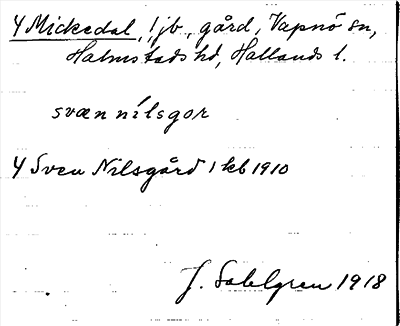 4 Mickedal, 1 jb, gård, Vapnö sn,
Halmstads hd, Hallands l.
svæn nilsgor
4 Sven Nilsgård 1 kb 1910
J. Sahlgren 1918